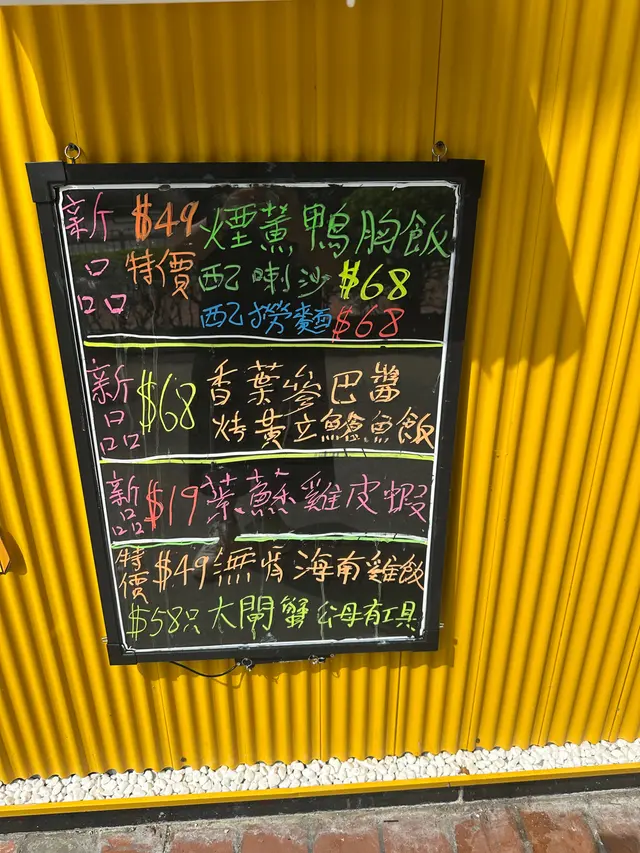 新品 $49 煙薰鴨胸飯
特價 配喇沙 $68
配撈麵 $68
新品 $68 香葉參巴醬
烤黃立鱠魚飯
新品 $19 紫蘇雞皮蝦
特價 $49 無骨海南雞飯
$58只 大閘蟹 公母有工具